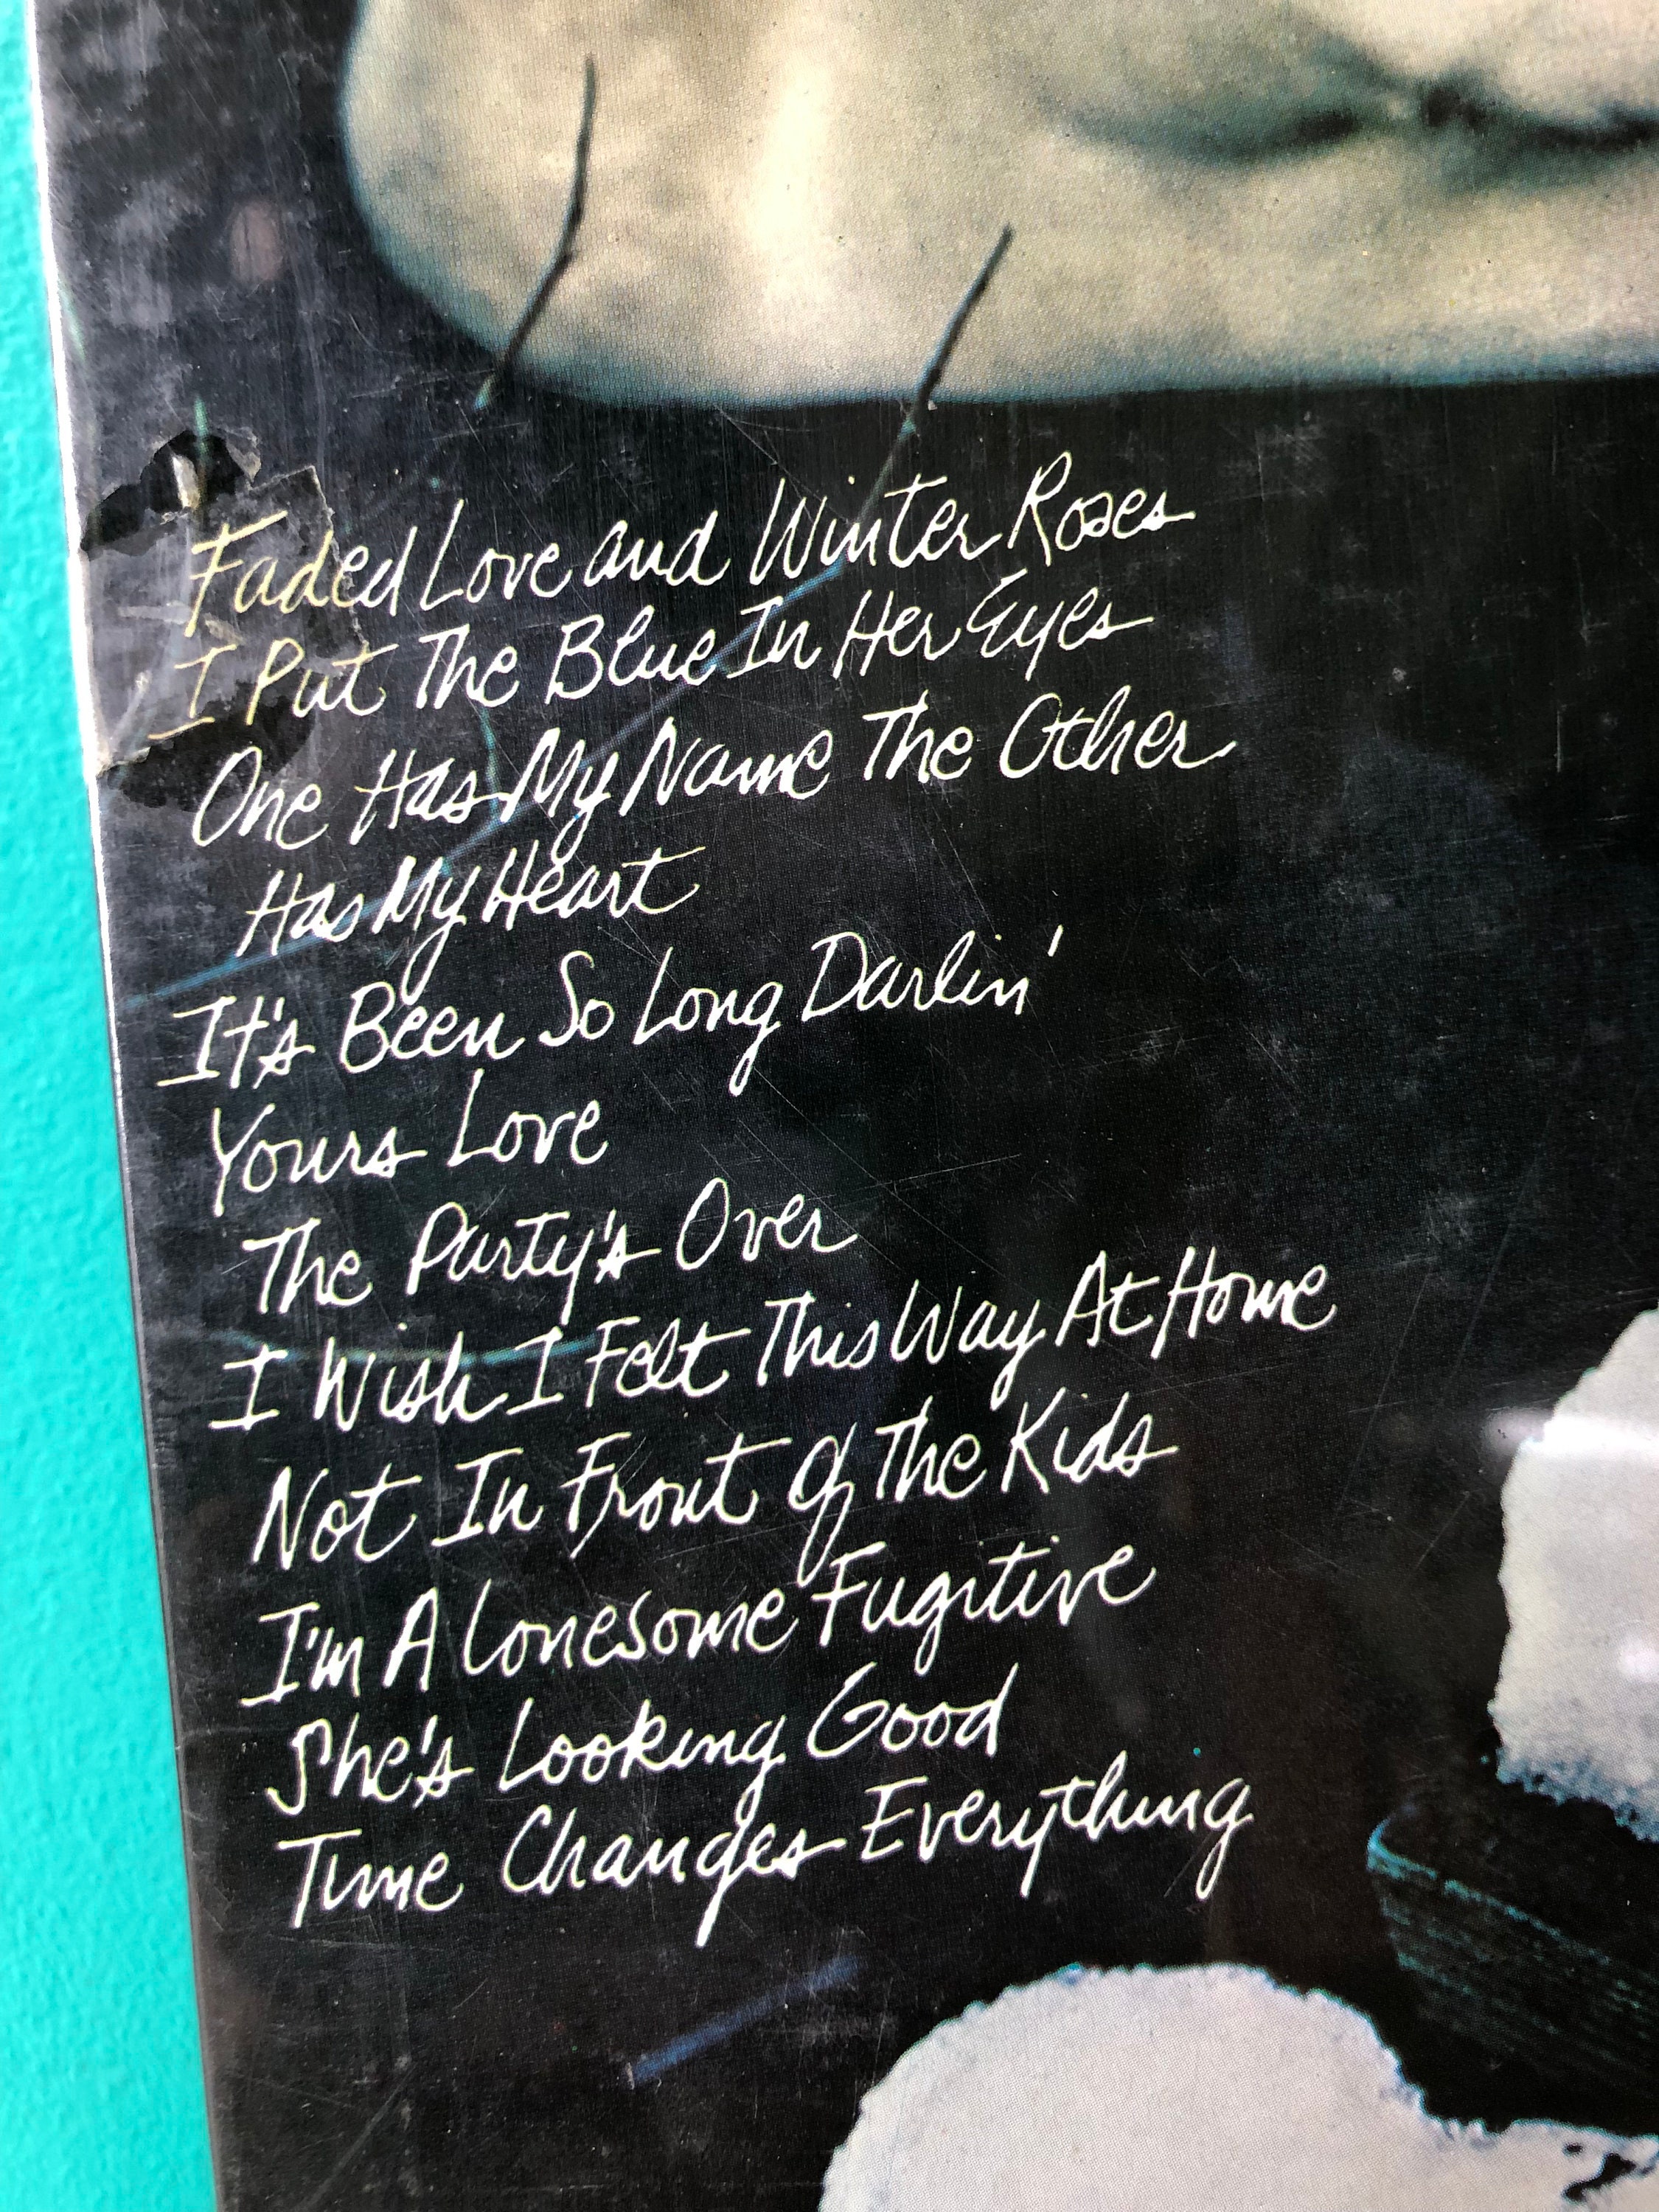 Faded Love and Winter Roses
I Put The Blue In Her Eyes
One Has My Name The Other
Has My Heart
It's Been So Long Darlin'
Yours Love
The Party's Over
I Wish I Felt This Way At Home
Not In Front Of The Kids
I'm A Lonesome Fugitive
She's Looking Good
Time Changes Everything